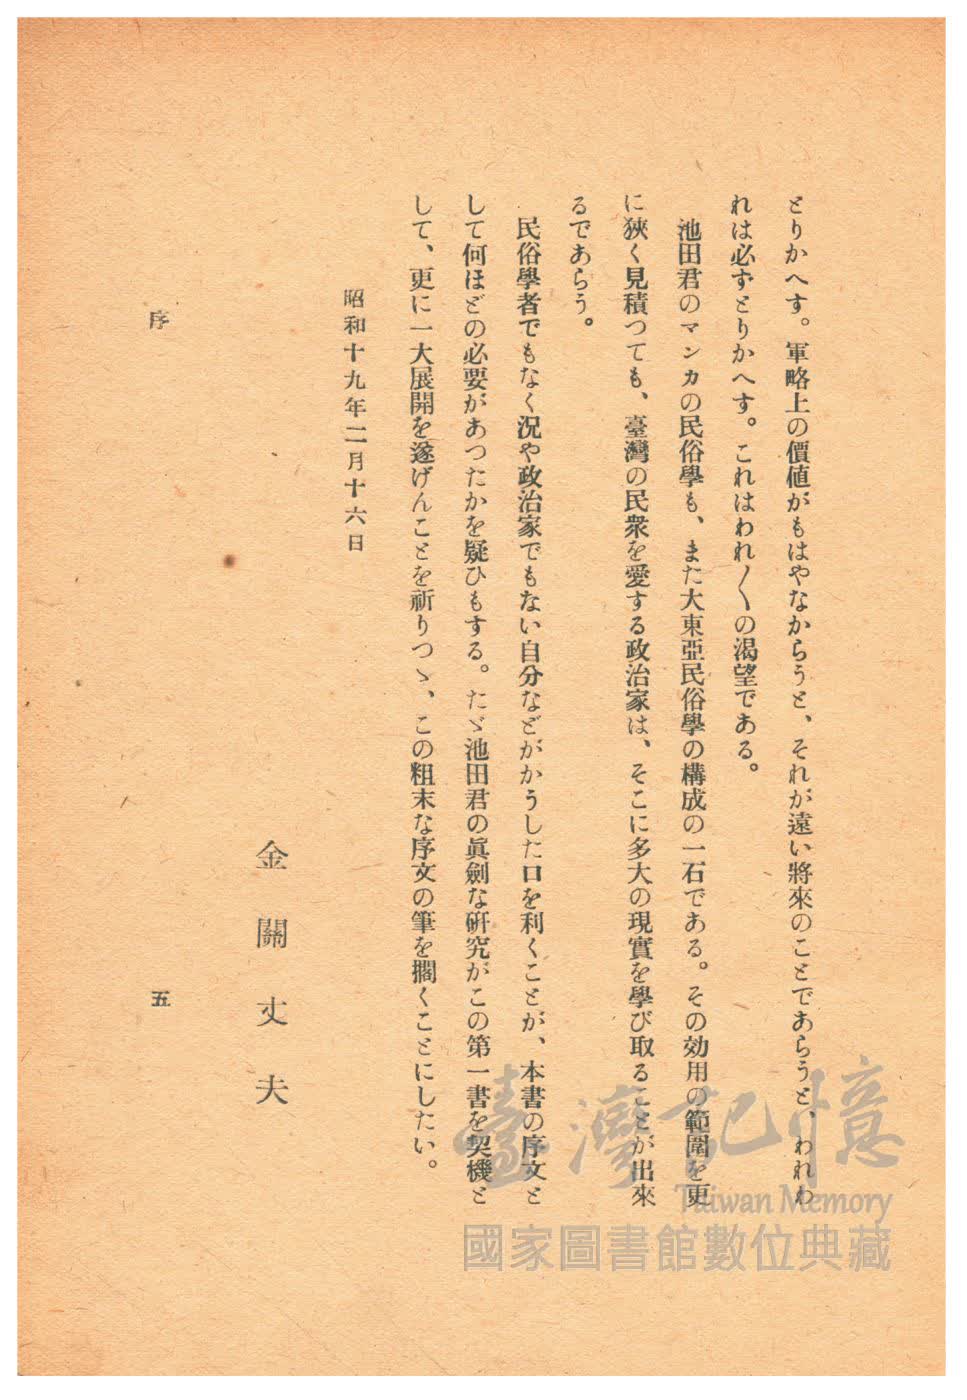 とりかへす。軍略上の價値がもはやなからうと、それが遠い將來のことであらうと、われわ
れは必ずとりかへす。これはわれ〳〵の渇望である。
池田君のマンカの民俗學も、また大東亞民俗學の構成の一石である。その効用の範圍を更
に狹く見積つても、臺灣の民衆を愛する政治家は、そこに多大の現實を學び取ることが出來
るであらう。
民俗學者でもなく況や政治家でもない自分などがかうした口を利くことが、本書の序文と
して何ほどの必要があつたかを疑ひもする。たゞ池田君の眞劍な硏究がこの第一書を契機と
して、更に一大展開を遂げんことを祈りつゝ、この粗末な序文の筆を擱くことにしたい。
昭和十九年二月十六日
金關丈夫
序
五
臺灣記憶
Taiwan Memory
國家圖書館數位典藏